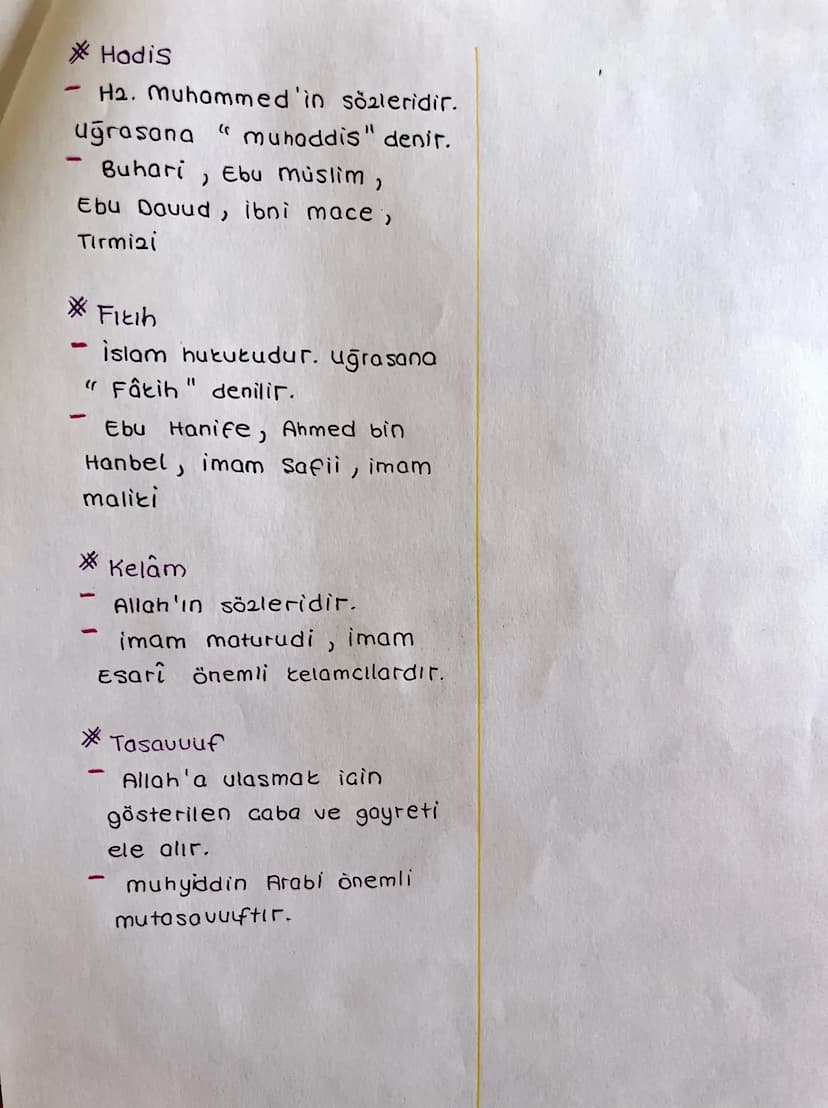 * Hadis
- Hz. Muhammed'in sözleridir.
uğrasana "muhaddis" denir.
- Buhari, Ebu müslim,
Ebu Davud, ibni mace,
Tırmizi
* Fıkıh
- İslam hukukudur. uğrasana
"Fâkih" denilir.
- Ebu Hanife, Ahmed bin
Hanbel, imam Safii, imam
maliki
* Kelâm
- Allah'ın sözleridir.
- imam maturudi, imam
Esarî önemli kelamcılardır.
* Tasavvuf
- Allah'a ulasmak icin
gösterilen caba ve gayreti
ele alır.
- muhyiddin Arabi önemli
mutasavvıftır.